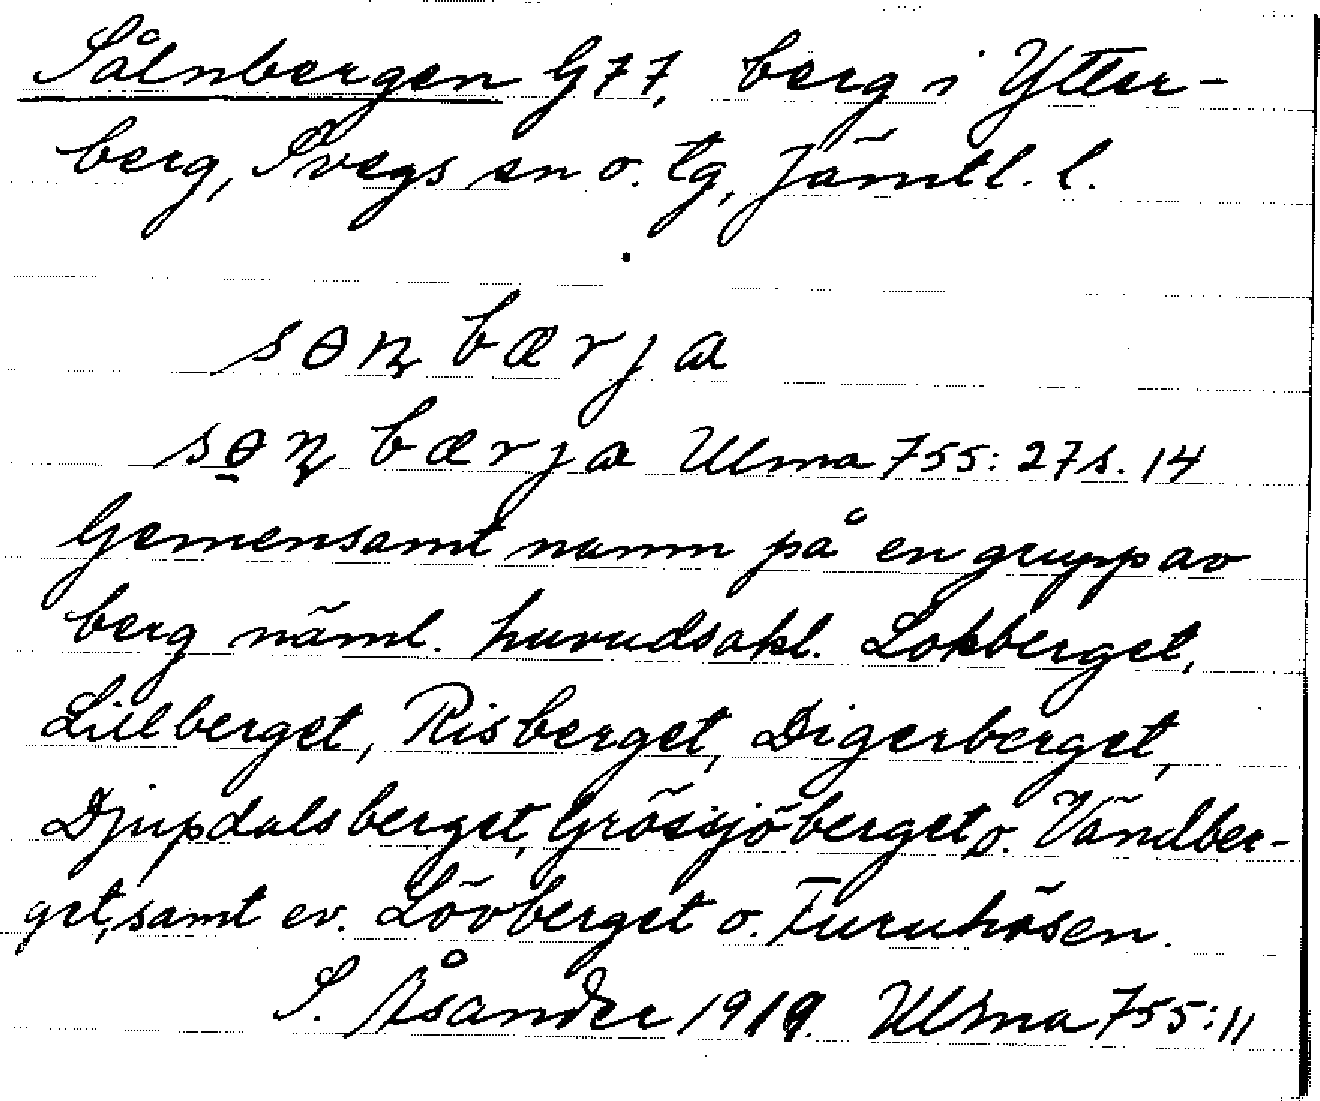 Sålnbergen G77, berg i Ytter-
berg, Svegs sn o. tg, Jämtl. l.
sɵɳbærja
sɵ̱ɳbærja Ulma 755:27 s. 14
Gemensamt namn på en grupp av
berg näml. huvudsakl. Lokberget,
Lillberget, Risberget, Digerberget,
Djupdalsberget, Grössjöberget o. Vändber-
get, samt ev. Lövberget o. Furuhösen.
S. Åsander 1919. Ulma 755:11